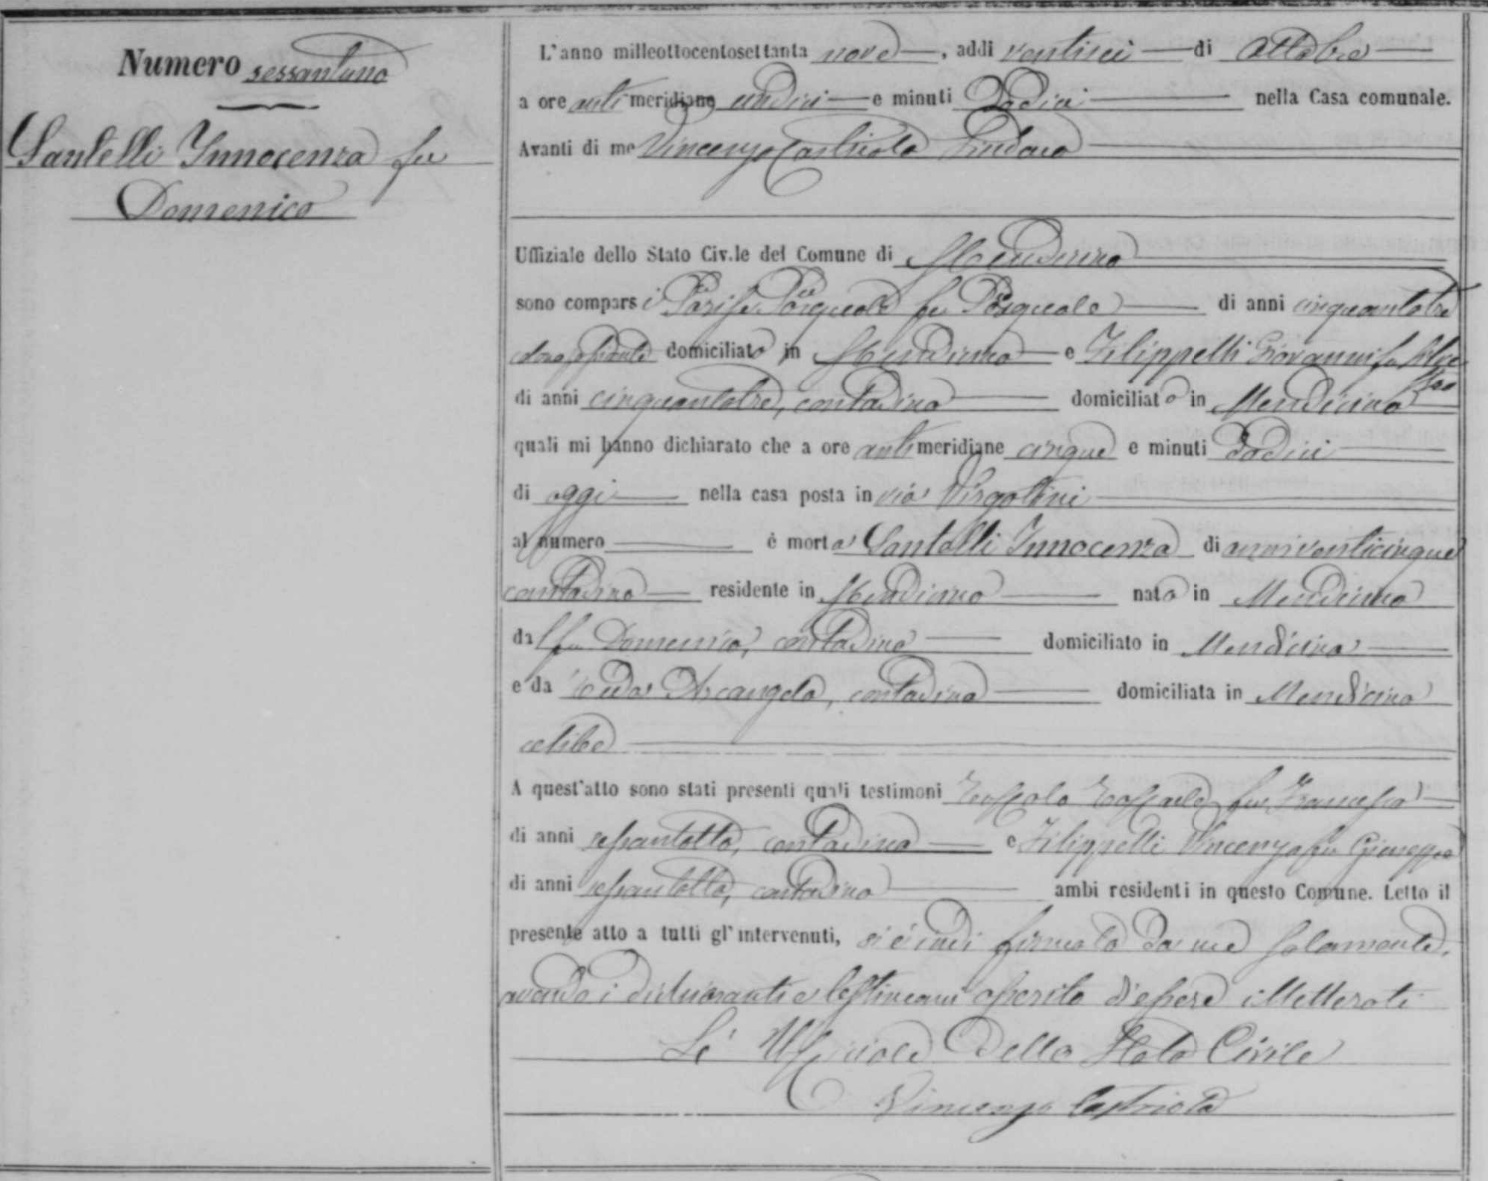 Numero sessantuno
Santelli Innocenza fu
Domenico
L'anno milleottocentosettanta nove, addi ventisei di Ottobre
a ore anti meridiane undici e minuti Dodici nella Casa comunale.
Avanti di me Vincenzo Castriota Sindaco
Uffiziale dello Stato Civ.le del Comune di Mendicino
sono comparsi Parise Pasquale fu Pasquale di anni cinquantatre
domiciliato in Mendicino e Filippelli Giovanni fu
di anni cinquantatre, contadino domiciliato in Mendicino
quali mi hanno dichiarato che a ore anti meridiane cinque e minuti Dodici
di oggi nella casa posta in via Virgoltini
al numero è morta Santelli Innocenza di anni venticinque
contadina residente in Mendicino nata in Mendicino
dal fu Domenico, contadino domiciliato in Mendicino
e da Arcangela, contadina domiciliata in Mendicino
celibe
A quest'atto sono stati presenti quali testimoni fu Francesco
di anni sessantotto, contadino e Filippelli Vincenzo fu Giuseppe
di anni sessantotto, contadino ambi residenti in questo Comune. Letto il
presente atto a tutti gl'intervenuti, si è indi firmato da me solamente,
avendo i dichiaranti e testimoni asserito d'essere illetterati
L'Ufficiale dello Stato Civile
Vincenzo Castriota